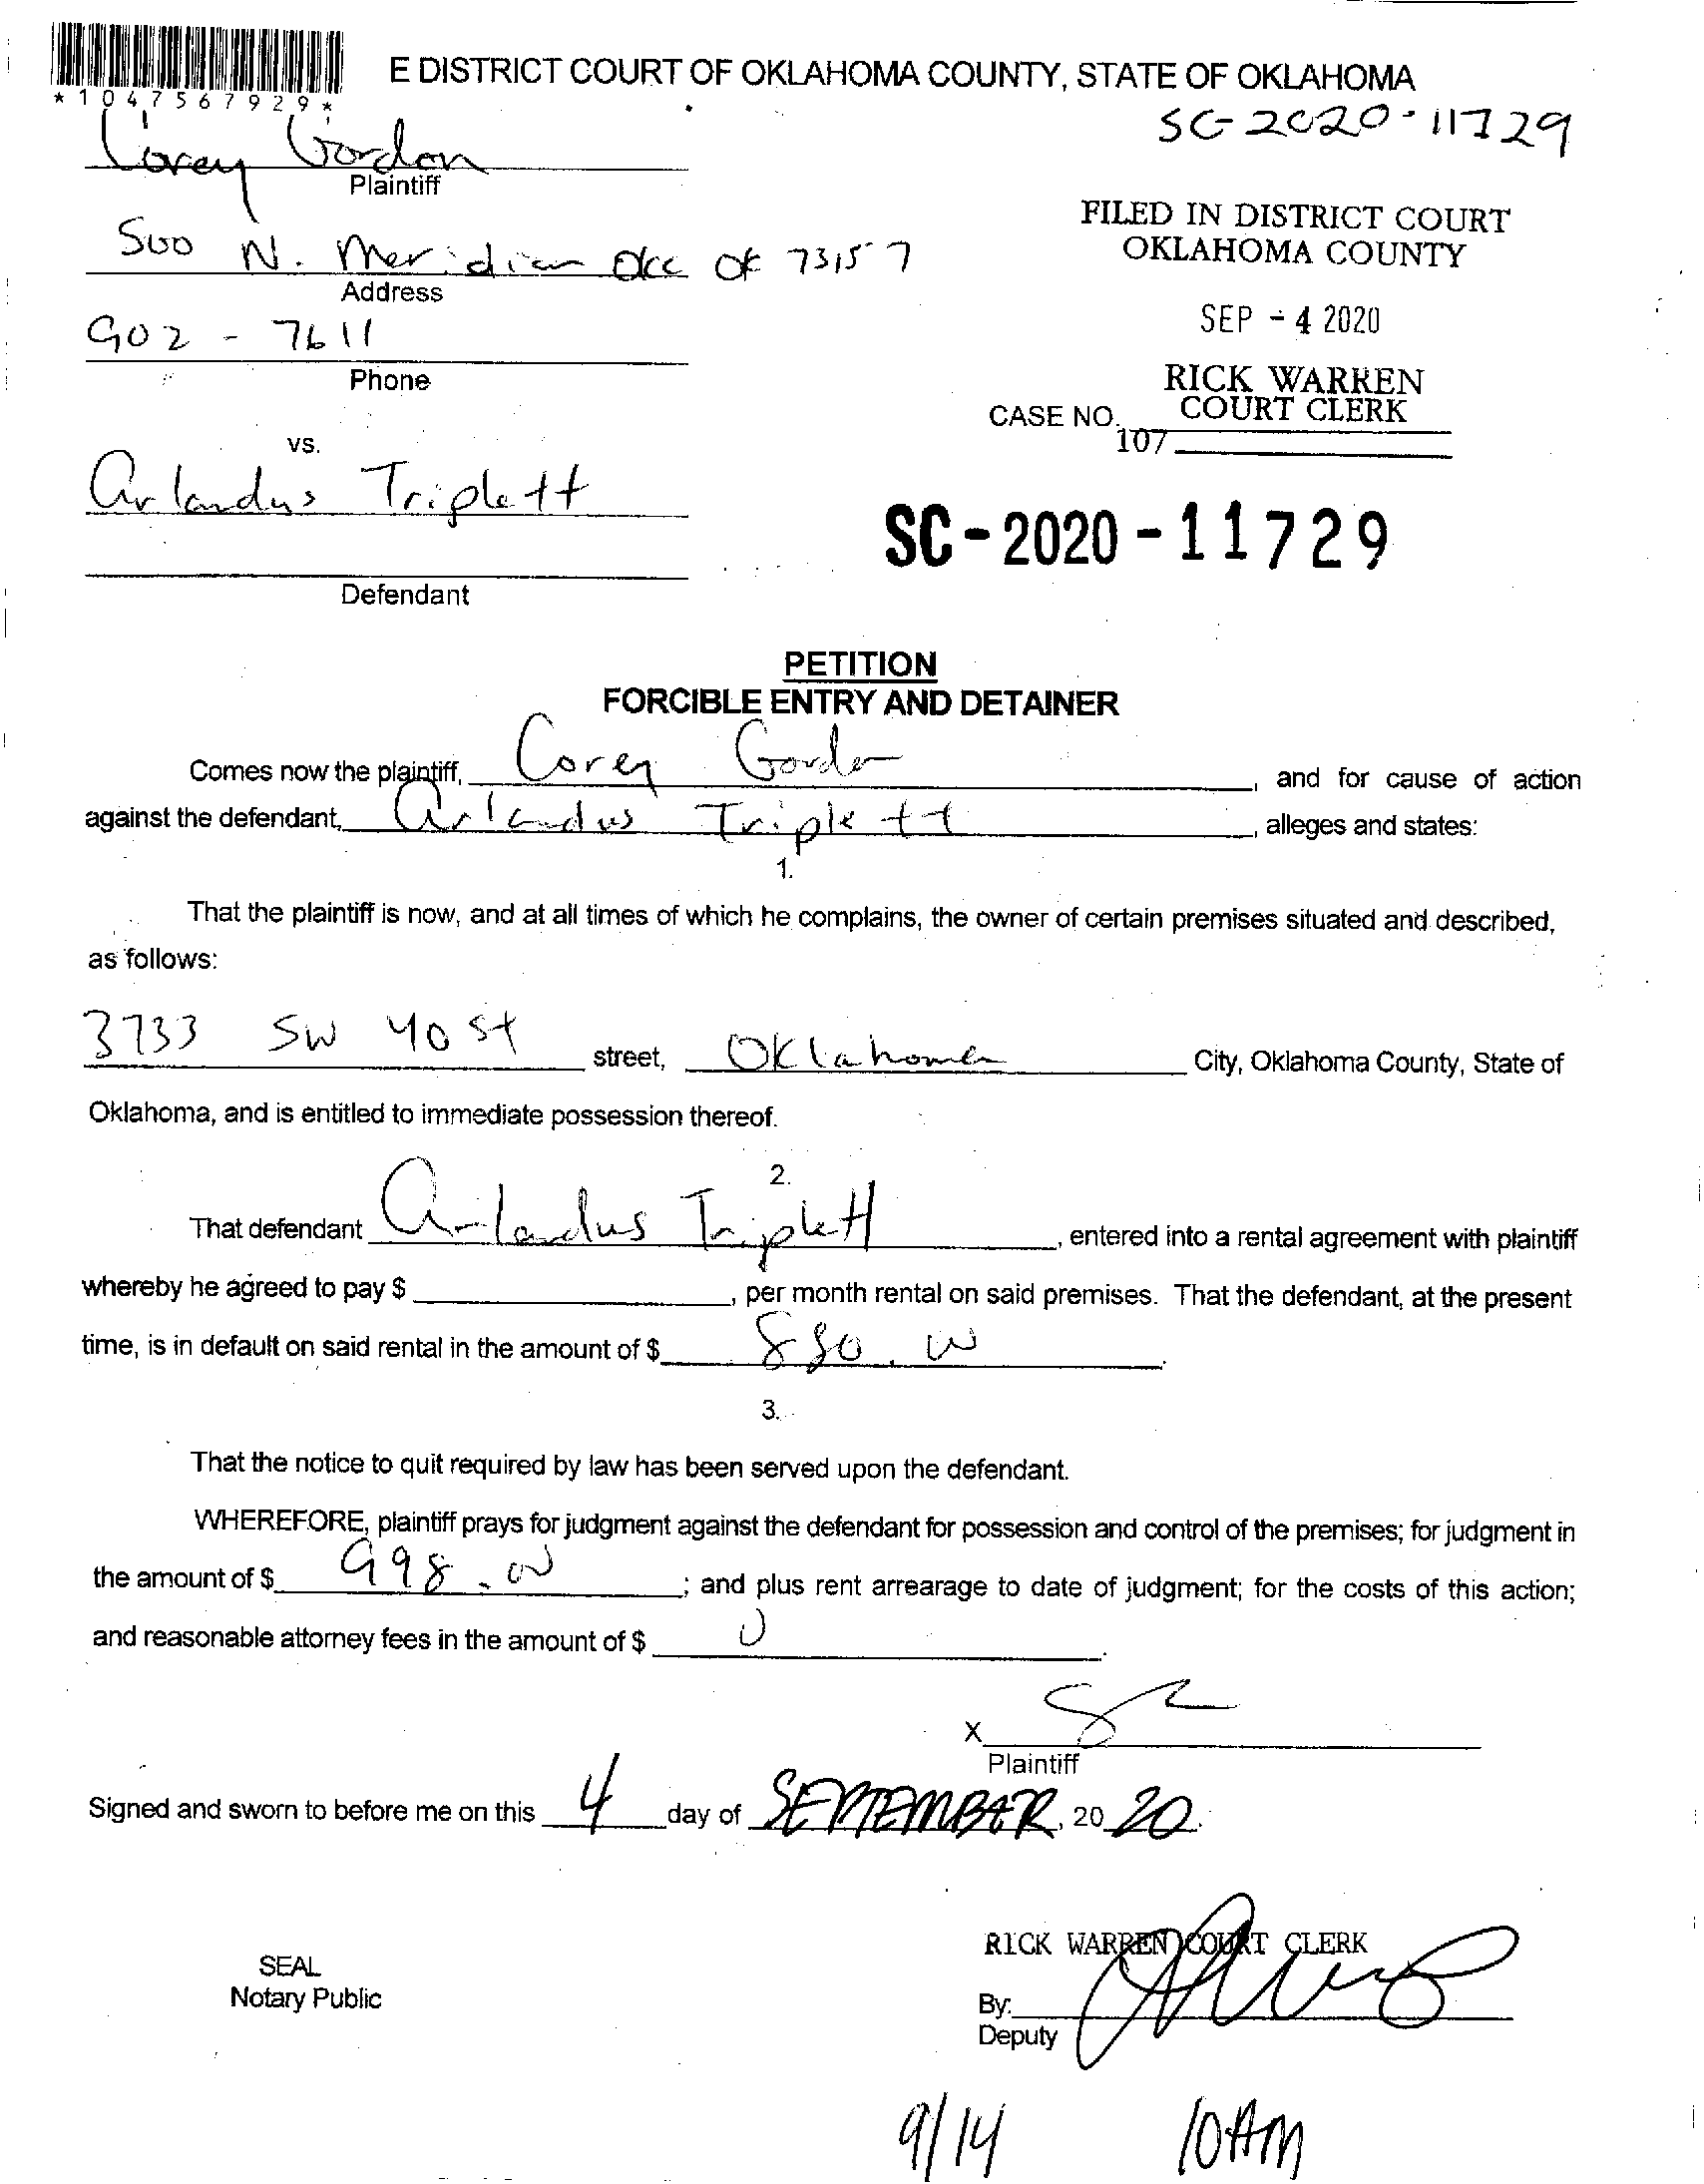 *1047567929*
E DISTRICT COURT OF OKLAHOMA COUNTY, STATE OF OKLAHOMA
SC-2020-11729
Corey Gordon
Plaintiff
FILED IN DISTRICT COURT
OKLAHOMA COUNTY
500 N. Meridian OKC OK 73157
Address
SEP - 4 2020
902 - 7611
Phone
RICK WARREN
COURT CLERK
CASE NO.
107
vs.
Arlandus Triplett
SC-2020-11729
Defendant
PETITION
FORCIBLE ENTRY AND DETAINER
Comes now the plaintiff, Corey Gordon, and for cause of action
against the defendant, Arlandus Triplett, alleges and states:
1.
That the plaintiff is now, and at all times of which he complains, the owner of certain premises situated and described,
as follows:
3733 SW 40 St street, Oklahoma City, Oklahoma County, State of
Oklahoma, and is entitled to immediate possession thereof.
2.
That defendant Arlandus Triplett, entered into a rental agreement with plaintiff
whereby he agreed to pay $, per month rental on said premises. That the defendant, at the present
time, is in default on said rental in the amount of $ 880.00.
3.
That the notice to quit required by law has been served upon the defendant.
WHEREFORE, plaintiff prays for judgment against the defendant for possession and control of the premises; for judgment in
the amount of $ 998.00; and plus rent arrearage to date of judgment; for the costs of this action;
and reasonable attorney fees in the amount of $ 0.
X
Plaintiff
Signed and sworn to before me on this 4 day of SEPTEMBER, 20 20.
RICK WARREN COURT CLERK
SEAL
Notary Public
By:
Deputy
9/14 10AM